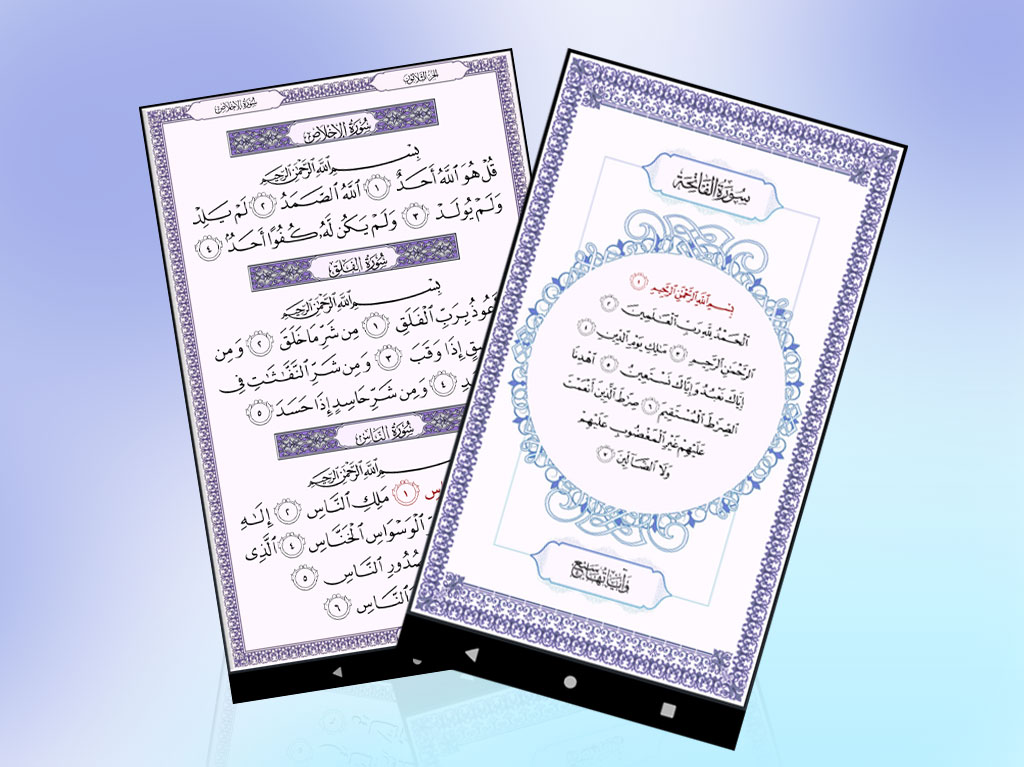 سُورَةُ الإِخْلَاصِ
الجُزْءُ الثَّلَاثُونَ
سُورَةُ الإِخْلَاصِ
بِسْمِ ٱللَّهِ ٱلرَّحْمَٰنِ ٱلرَّحِيمِ
قُلْ هُوَ ٱللَّهُ أَحَدٌ ١ ٱللَّهُ ٱلصَّمَدُ ٢ لَمْ يَلِدْ
وَلَمْ يُولَدْ ٣ وَلَمْ يَكُن لَّهُۥ كُفُوًا أَحَدٌۢ ٤
سُورَةُ الفَلَقِ
بِسْمِ ٱللَّهِ ٱلرَّحْمَٰنِ ٱلرَّحِيمِ
عُوذُ بِرَبِّ ٱلْفَلَقِ ١ مِن شَرِّ مَا خَلَقَ ٢ وَمِن
سِقٍ إِذَا وَقَبَ ٣ وَمِن شَرِّ ٱلنَّفَّٰثَٰتِ فِي
دِ ٤ وَمِن شَرِّ حَاسِدٍ إِذَا حَسَدَ ٥
سُورَةُ النَّاسِ
بِسْمِ ٱللَّهِ ٱلرَّحْمَٰنِ ٱلرَّحِيمِ
١ مَلِكِ ٱلنَّاسِ ٢ إِلَٰهِ
ٱلْوَسْوَاسِ ٱلْخَنَّاسِ ٤ ٱلَّذِي
صُدُورِ ٱلنَّاسِ ٥
ٱلنَّاسِ ٦
سُورَةُ الفَاتِحَةِ
بِسْمِ ٱللَّهِ ٱلرَّحْمَٰنِ ٱلرَّحِيمِ ١
ٱلْحَمْدُ لِلَّهِ رَبِّ ٱلْعَٰلَمِينَ ٢
ٱلرَّحْمَٰنِ ٱلرَّحِيمِ ٣ مَٰلِكِ يَوْمِ ٱلدِّينِ ٤
إِيَّاكَ نَعْبُدُ وَإِيَّاكَ نَسْتَعِينُ ٥ ٱهْدِنَا
ٱلصِّرَٰطَ ٱلْمُسْتَقِيمَ ٦ صِرَٰطَ ٱلَّذِينَ أَنْعَمْتَ
عَلَيْهِمْ غَيْرِ ٱلْمَغْضُوبِ عَلَيْهِمْ
وَلَا ٱلضَّآلِّينَ ٧
وَآيَاتُهَا سَبْعٌ